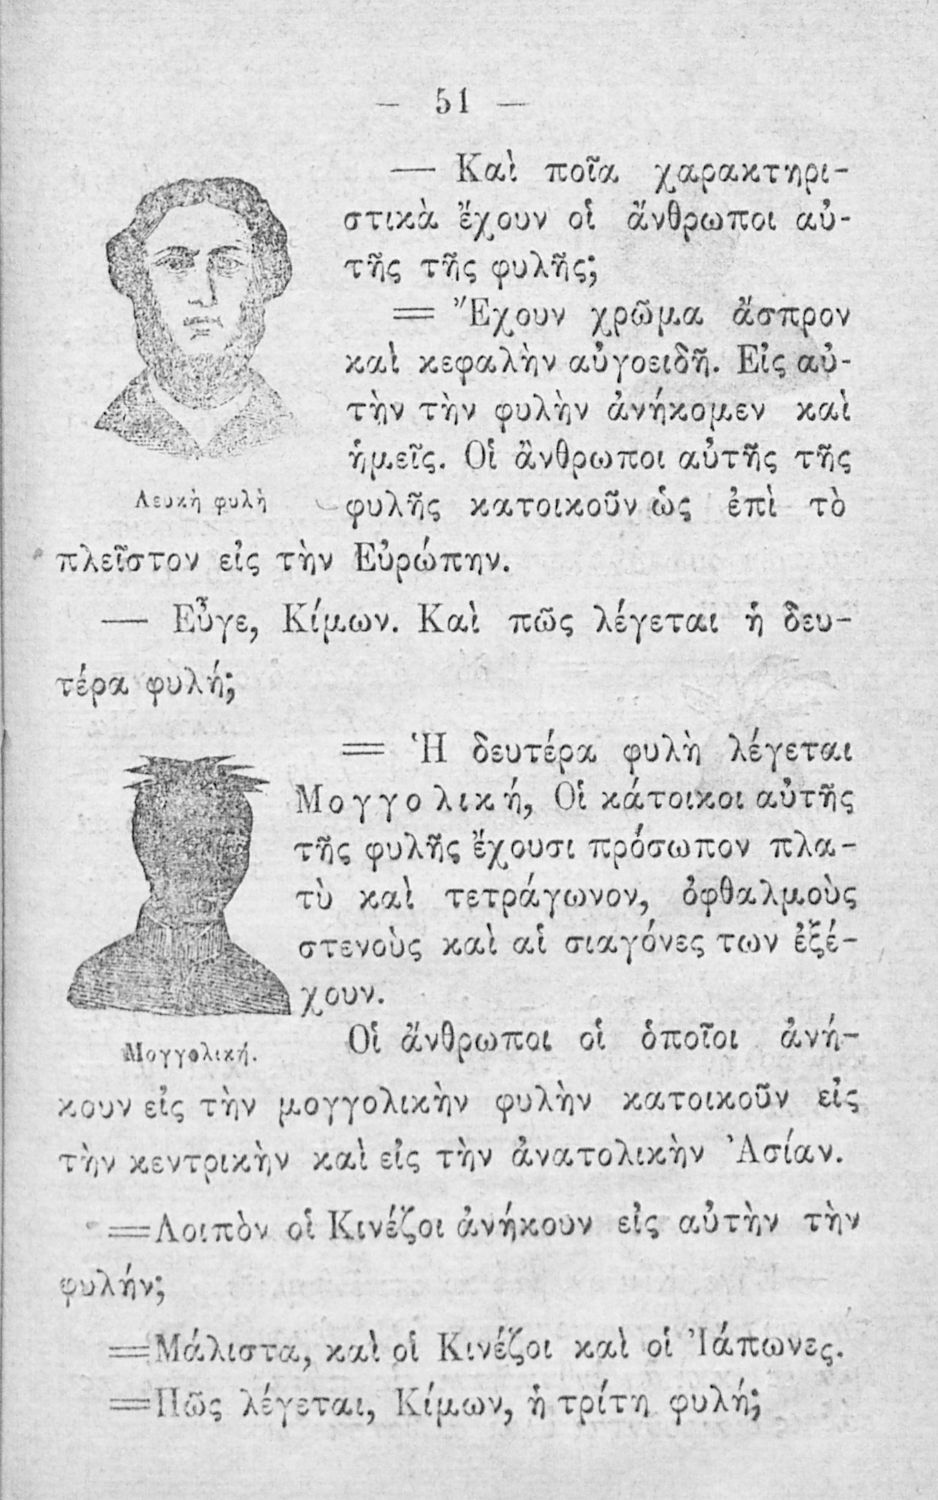 — 51 —
— Καὶ ποῖα χαρακτηρι-
στικὰ ἔχουν οἱ ἄνθρωποι αὐ-
τῆς τῆς φυλῆς;
= Ἔχουν χρῶμα ἄσπρον
καὶ κεφαλὴν αὐγοειδῆ. Εἰς αὐ-
τὴν τὴν φυλὴν ἀνήκομεν καὶ
ἡμεῖς. Οἱ ἄνθρωποι αὐτῆς τῆς
φυλῆς κατοικοῦν ὡς ἐπὶ τὸ
Λευκὴ φυλὴ
πλεῖστον εἰς τὴν Εὐρώπην.
— Εὖγε, Κίμων. Καὶ πῶς λέγεται ἡ δευ-
τέρα φυλή;
= Ἡ δευτέρα φυλὴ λέγεται
Μογγολική, Οἱ κάτοικοι αὐτῆς
τῆς φυλῆς ἔχουσι πρόσωπον πλα-
τὺ καὶ τετράγωνον, ὀφθαλμοὺς
στενοὺς καὶ αἱ σιαγόνες των ἐξέ-
χουν.
Μογγολική.
Οἱ ἄνθρωποι οἱ ὁποῖοι ἀνή-
κουν εἰς τὴν μογγολικὴν φυλὴν κατοικοῦν εἰς
τὴν κεντρικὴν καὶ εἰς τὴν ἀνατολικὴν Ἀσίαν.
=Λοιπὸν οἱ Κινέζοι ἀνήκουν εἰς αὐτὴν τὴν
φυλήν;
=Μάλιστα, καὶ οἱ Κινέζοι καὶ οἱ Ἰάπωνες.
=Πῶς λέγεται, Κίμων, ἡ τρίτη φυλή;